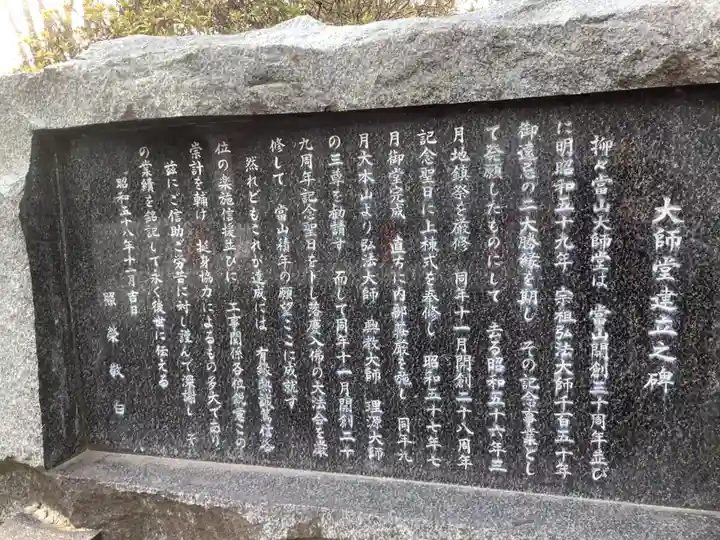 大師堂建立之碑
抑々當山大師堂は 當山開創二十周年並び
に明昭和五十九年 宗祖弘法大師千百五十年
御遠忌の二大勝縁を期し その記念事業とし
て発願したものにして 去る昭和五十六年三
月地鎮祭を厳修 同年十一月開創二十八周年
記念聖日に上棟式を奉修し 昭和五十七年七
月御堂完成 直ちに内部荘厳を施し 同年九
月大本山より弘法大師 興教大師 理源大師
の三尊を勧請す 而して同年十一月開創二十
九周年記念聖日を卜し落慶入佛の大法会を厳
修して 當山積年の願望ここに成就す
然れどもこれが達成には 有縁
位の楽施信援並びに 工事関係各位
崇計を輔け 挺身協力によるもの多大であり
茲にご信助ご労苦に対し謹んで深謝し そ
の業績を銘記して永く後世に伝える
昭和五十八年十一月吉日
照榮敬白